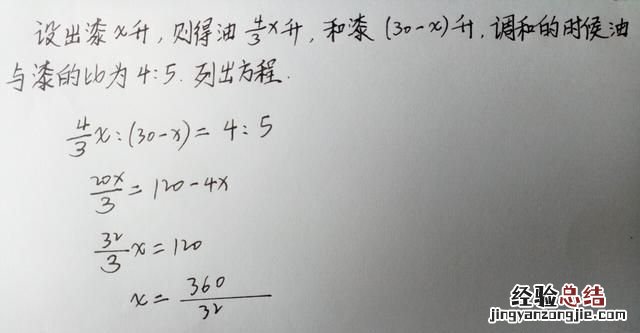 设出漆x升，则得油4/3x升，和漆(30-x)升，调和的时候油
与漆的比为4:5. 列出方程.
4/3x:(30-x)=4:5
20x/3=120-4x
32/3x=120
x=360/32
经验总结
jingyanzongjie.com